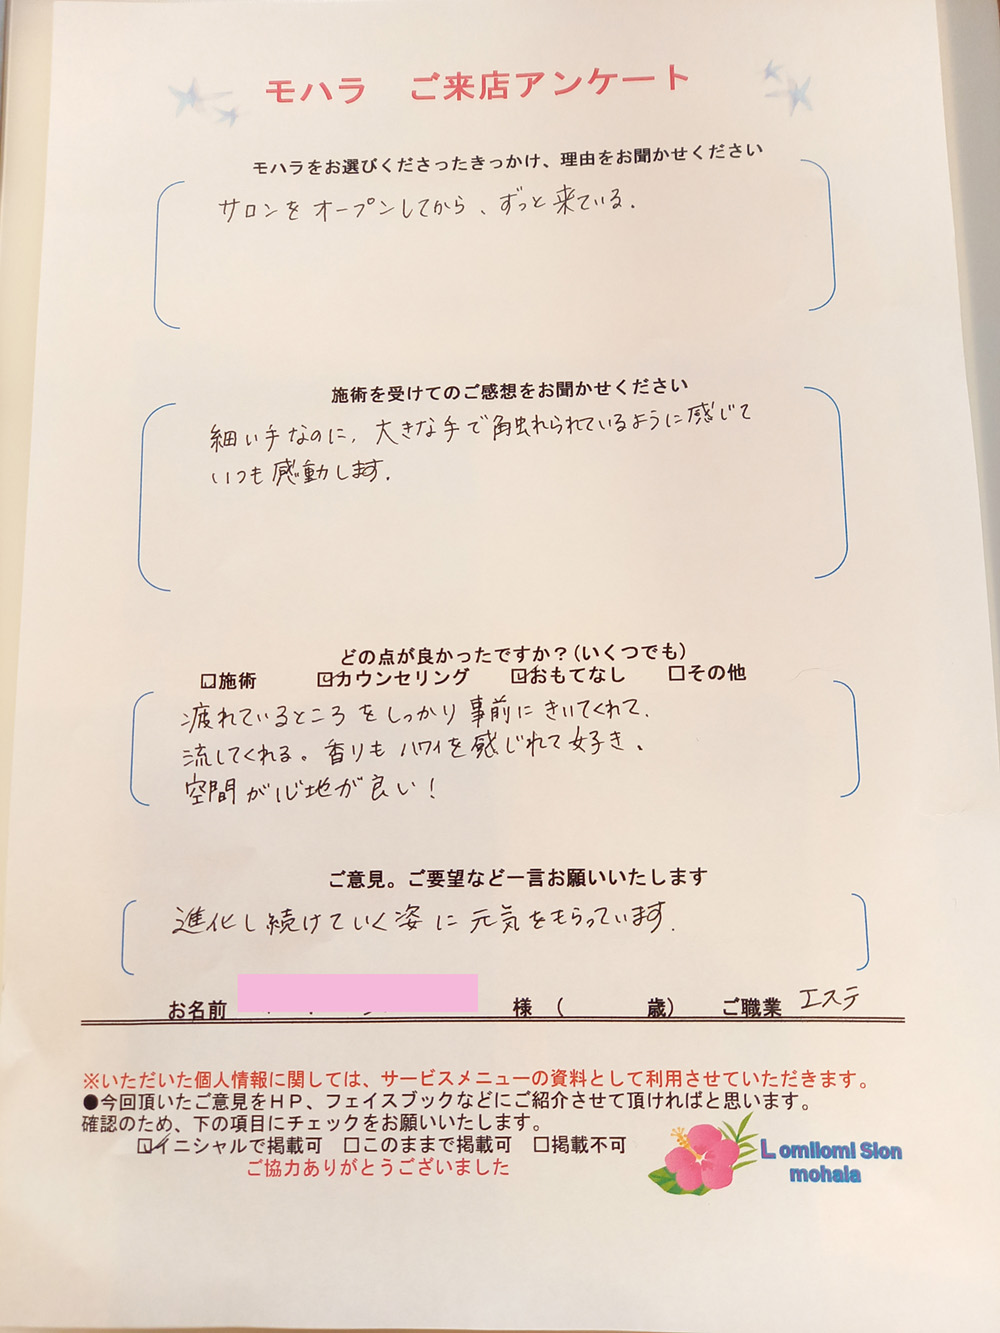 モハラ ご来店アンケート
モハラをお選びくださったきっかけ、理由をお聞かせください
サロンをオープンしてから、ずっと来ている.
施術を受けてのご感想をお聞かせください
細い手なのに、大きな手で触れられているように感じて
いつも感動します.
どの点が良かったですか？(いくつでも)
☑施術 ☑カウンセリング ☑おもてなし □その他
疲れているところをしっかり事前にきいてくれて、
流してくれる。香りもハワイを感じれて好き、
空間が心地が良い！
ご意見。ご要望など一言お願いいたします
進化し続けていく姿に元気をもらっています.
お名前 様 ( 歳) ご職業 エステ
※いただいた個人情報に関しては、サービスメニューの資料として利用させていただきます。
●今回頂いたご意見をＨＰ、フェイスブックなどにご紹介させて頂ければと思います。
確認のため、下の項目にチェックをお願いいたします。
☑イニシャルで掲載可 □このままで掲載可 □掲載不可
ご協力ありがとうございました
Lomilomi Sion
mohala